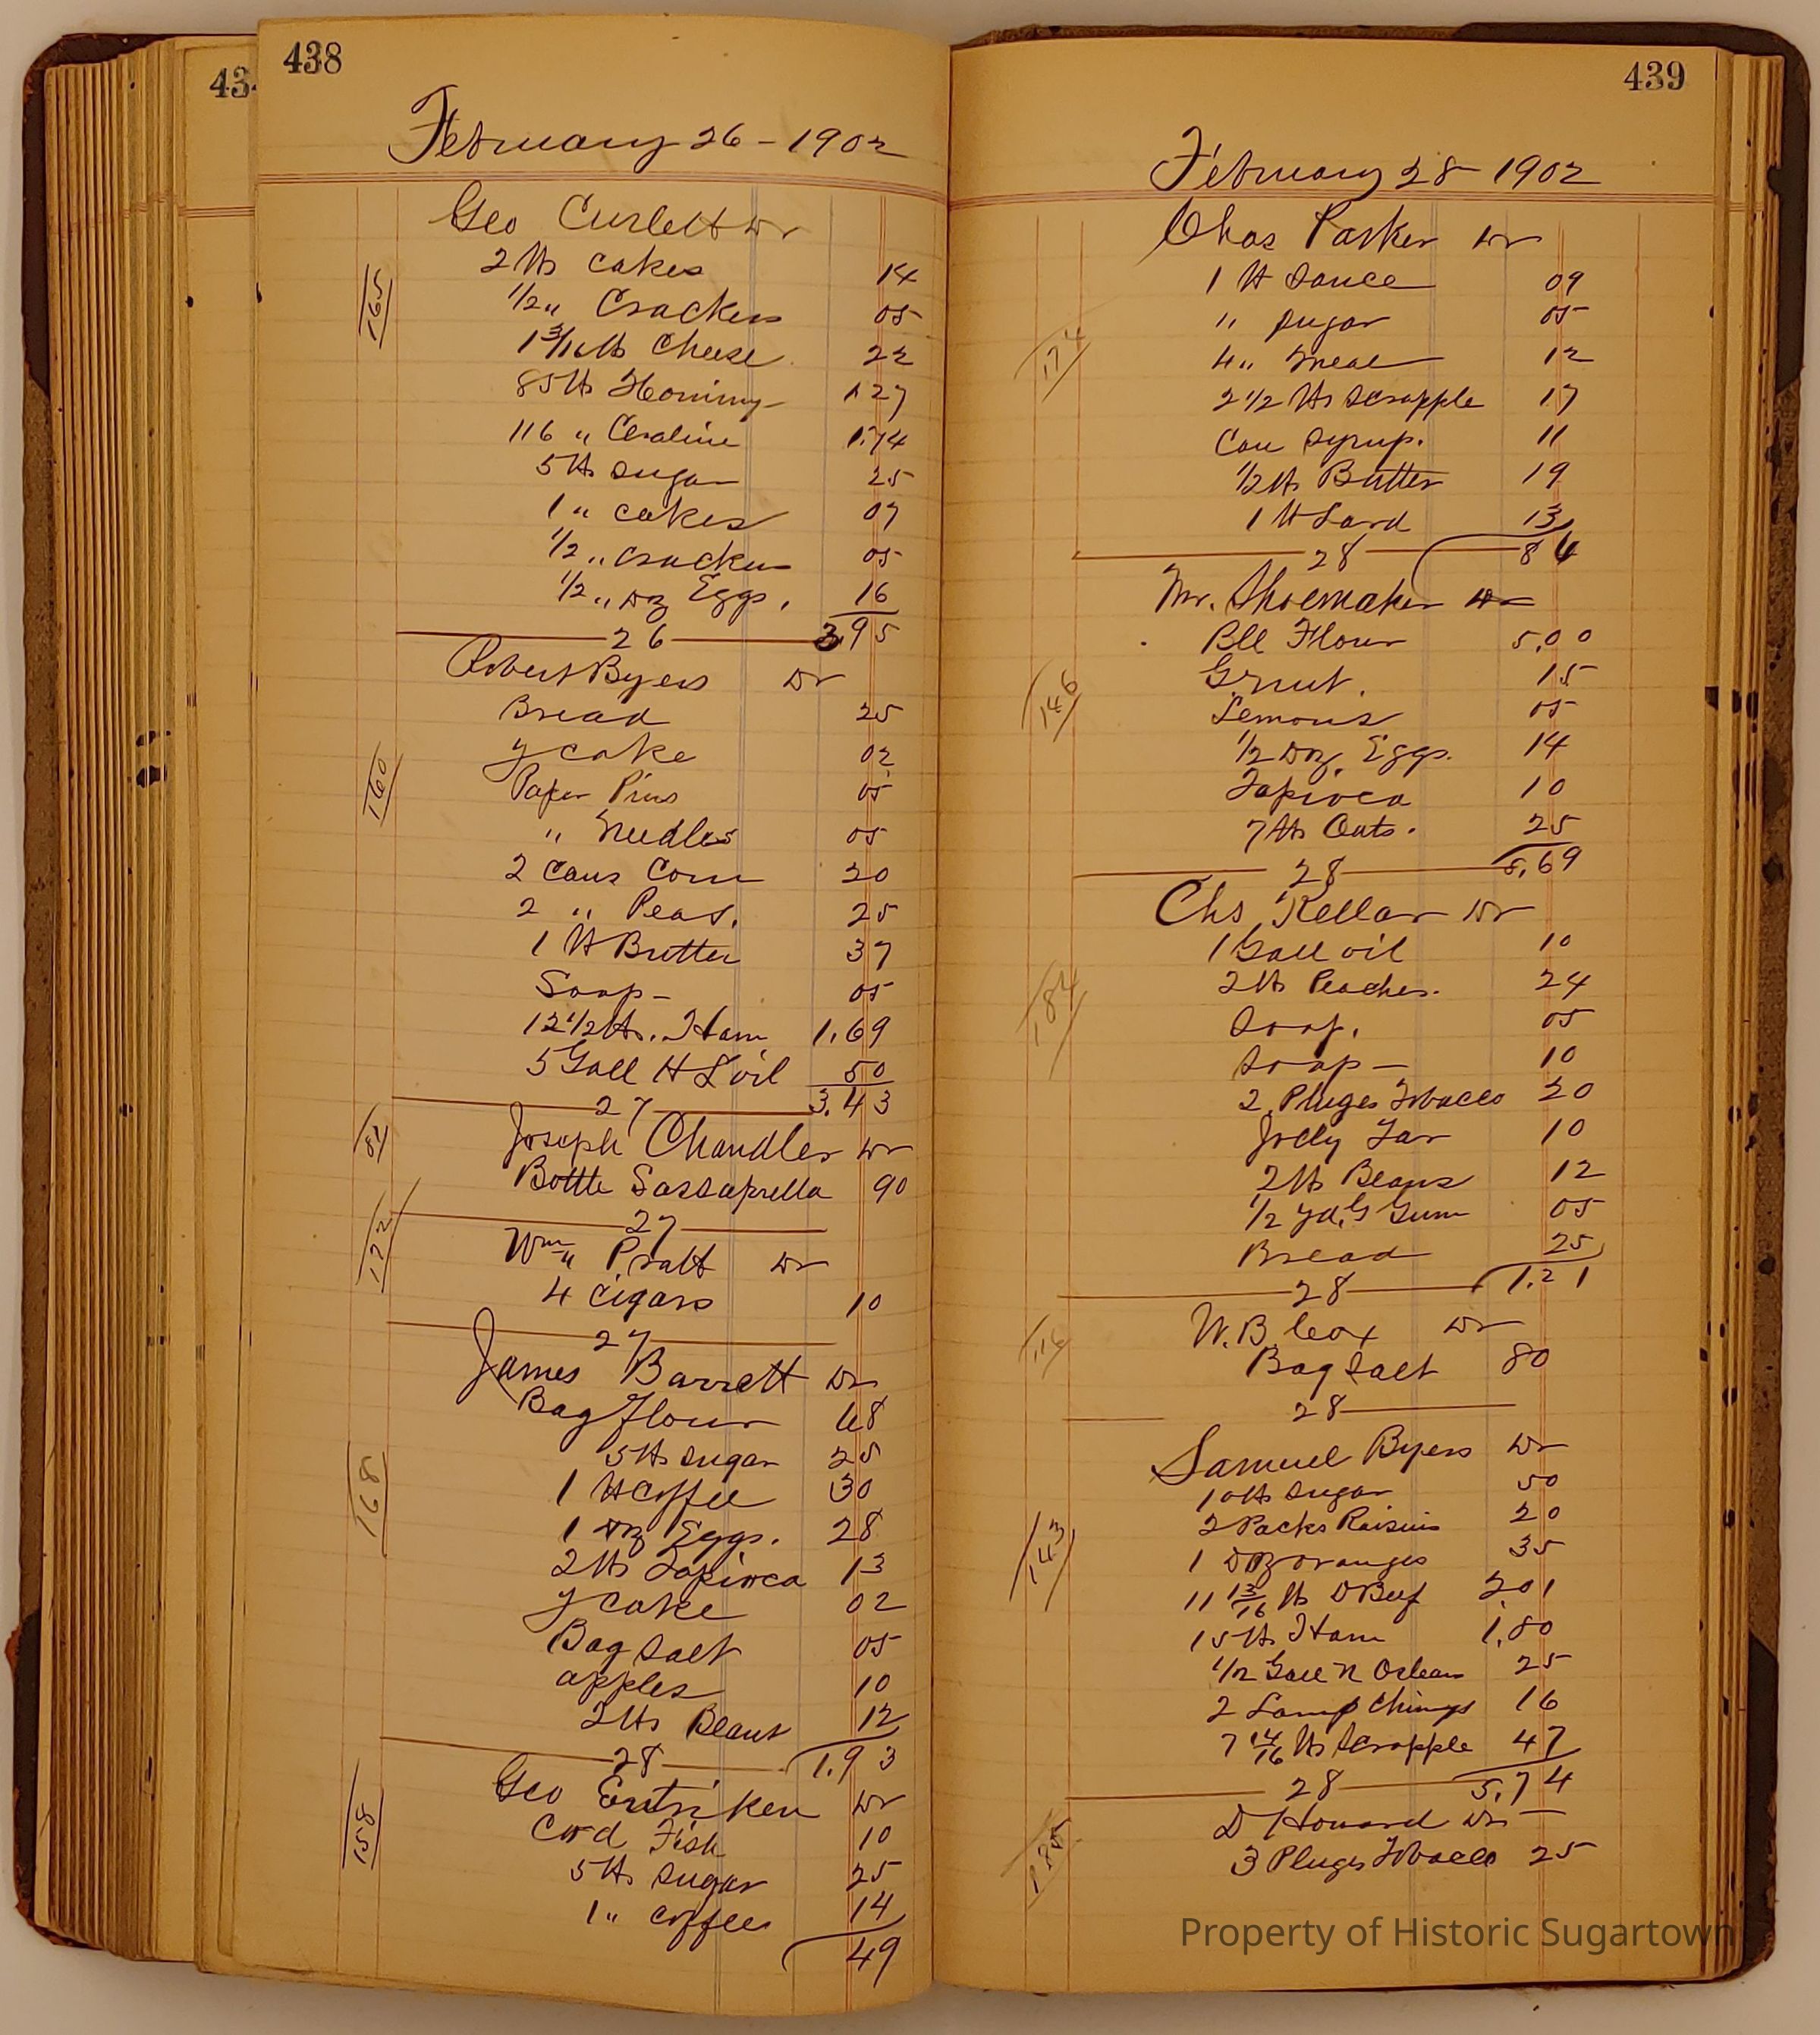 434
438
February 26 - 1902
Geo Curlett Dr
165
2 lbs Cakes 14
1/2 " Crackers 05
1 3/16 lb Cheese 22
85 lb Hominy 1.27
116 " Ceraline 1.74
5 lb Sugar 25
1 " Cakes 07
1/2 " Crackers 05
1/2 " Dz Eggs. 16
26 3.95
Robert Byers Dr
160
Bread 25
y cake 02
Paper Pins 05
" Needles 05
2 Cans Corn 20
2 " Peas. 25
1 lb Butter 37
Soap - 05
12 1/2 lbs. Ham 1.69
5 Gall H L oil 50
27 3.43
Joseph Chandler Dr
Bottle Sassaprella 90
27
Wm " Pratt Dr
172
4 Cigars 10
27
James Barrett Dr
168
Bag Flour 68
5 lb Sugar 25
1 lb Coffee 30
1 Dz Eggs. 28
2 lb Tapioca 13
y cake 02
Bag Salt 05
apples 10
2 lbs Beans 12
28 1.93
Geo Entriken Dr
158
Cod Fish 10
5 lb Sugar 25
1 " Coffee 14
49
439
February 28 - 1902
Chas Parker Dr
174
1 lb Sauce 09
" Sugar 05
4 " Meal 12
2 1/2 lbs Scrapple 17
Can Syrup. 11
1/2 lb Butter 19
1 lb Lard 13
28 86
Mr. Shoemaker Dr
146
Bll Flour 5.00
Grnut. 15
Lemons 05
1/2 Dz. Eggs. 14
Tapioca 10
7 lb Oats. 25
28 5.69
Chs Kellar Dr
184
1 Gall oil 10
2 lb Peaches. 24
Soap. 05
Soap - 10
2 Pluges Tobacco 20
Jelly Tar 10
2 lb Beans 12
1/2 yd. G Gum 05
Bread 25
28 1.21
W.B. Cox Dr
116
Bag Salt 80
28
Samuel Byers Dr
143
10 lb Sugar 50
2 Packs Raisins 20
1 Dz oranges 35
11 13/16 lb D Beef 2.01
15 lb Ham 1.80
1/2 Gall N Orleans 25
2 Lamp Chimys 16
7 14/16 lb Scrapple 47
28 5.74
D Howard Dr
3 Pluges Tobacco 25
Property of Historic Sugartown